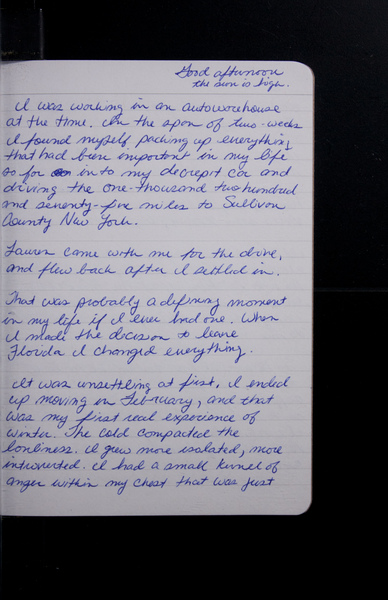 Good afternoon
the sun is high.
I was working in an autowarehouse
at the time. In the span of two-weeks
I found myself packing up everything
that had been important in my life
so far in to my decrepit car and
driving the one-thousand two hundred
and seventy-five miles to Sullivan
County New York.
Lauren came with me for the drive,
and flew back after I settled in.
That was probably a defining moment
in my life if I ever had one. When
I made the decision to leave
Florida I changed everything.
It was unsettling at first. I ended
up moving in February, and that
was my first real experience of
winter. The cold compacted the
lonliness. I grew more isolated, more
introverted. I had a small kernel of
anger within my chest that was just